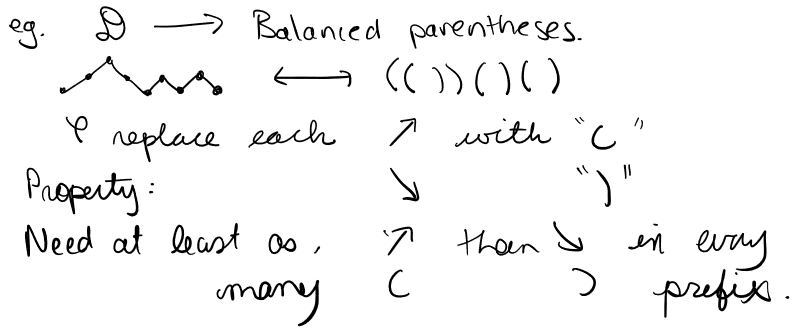 eg. 𝒟 ⟶ Balanced parentheses.
⟷ (())()()
φ replace each ↗ with "("
Property: ↘ ")"
Need at least as, ↗ than ↘ in every
many ( ) prefix.